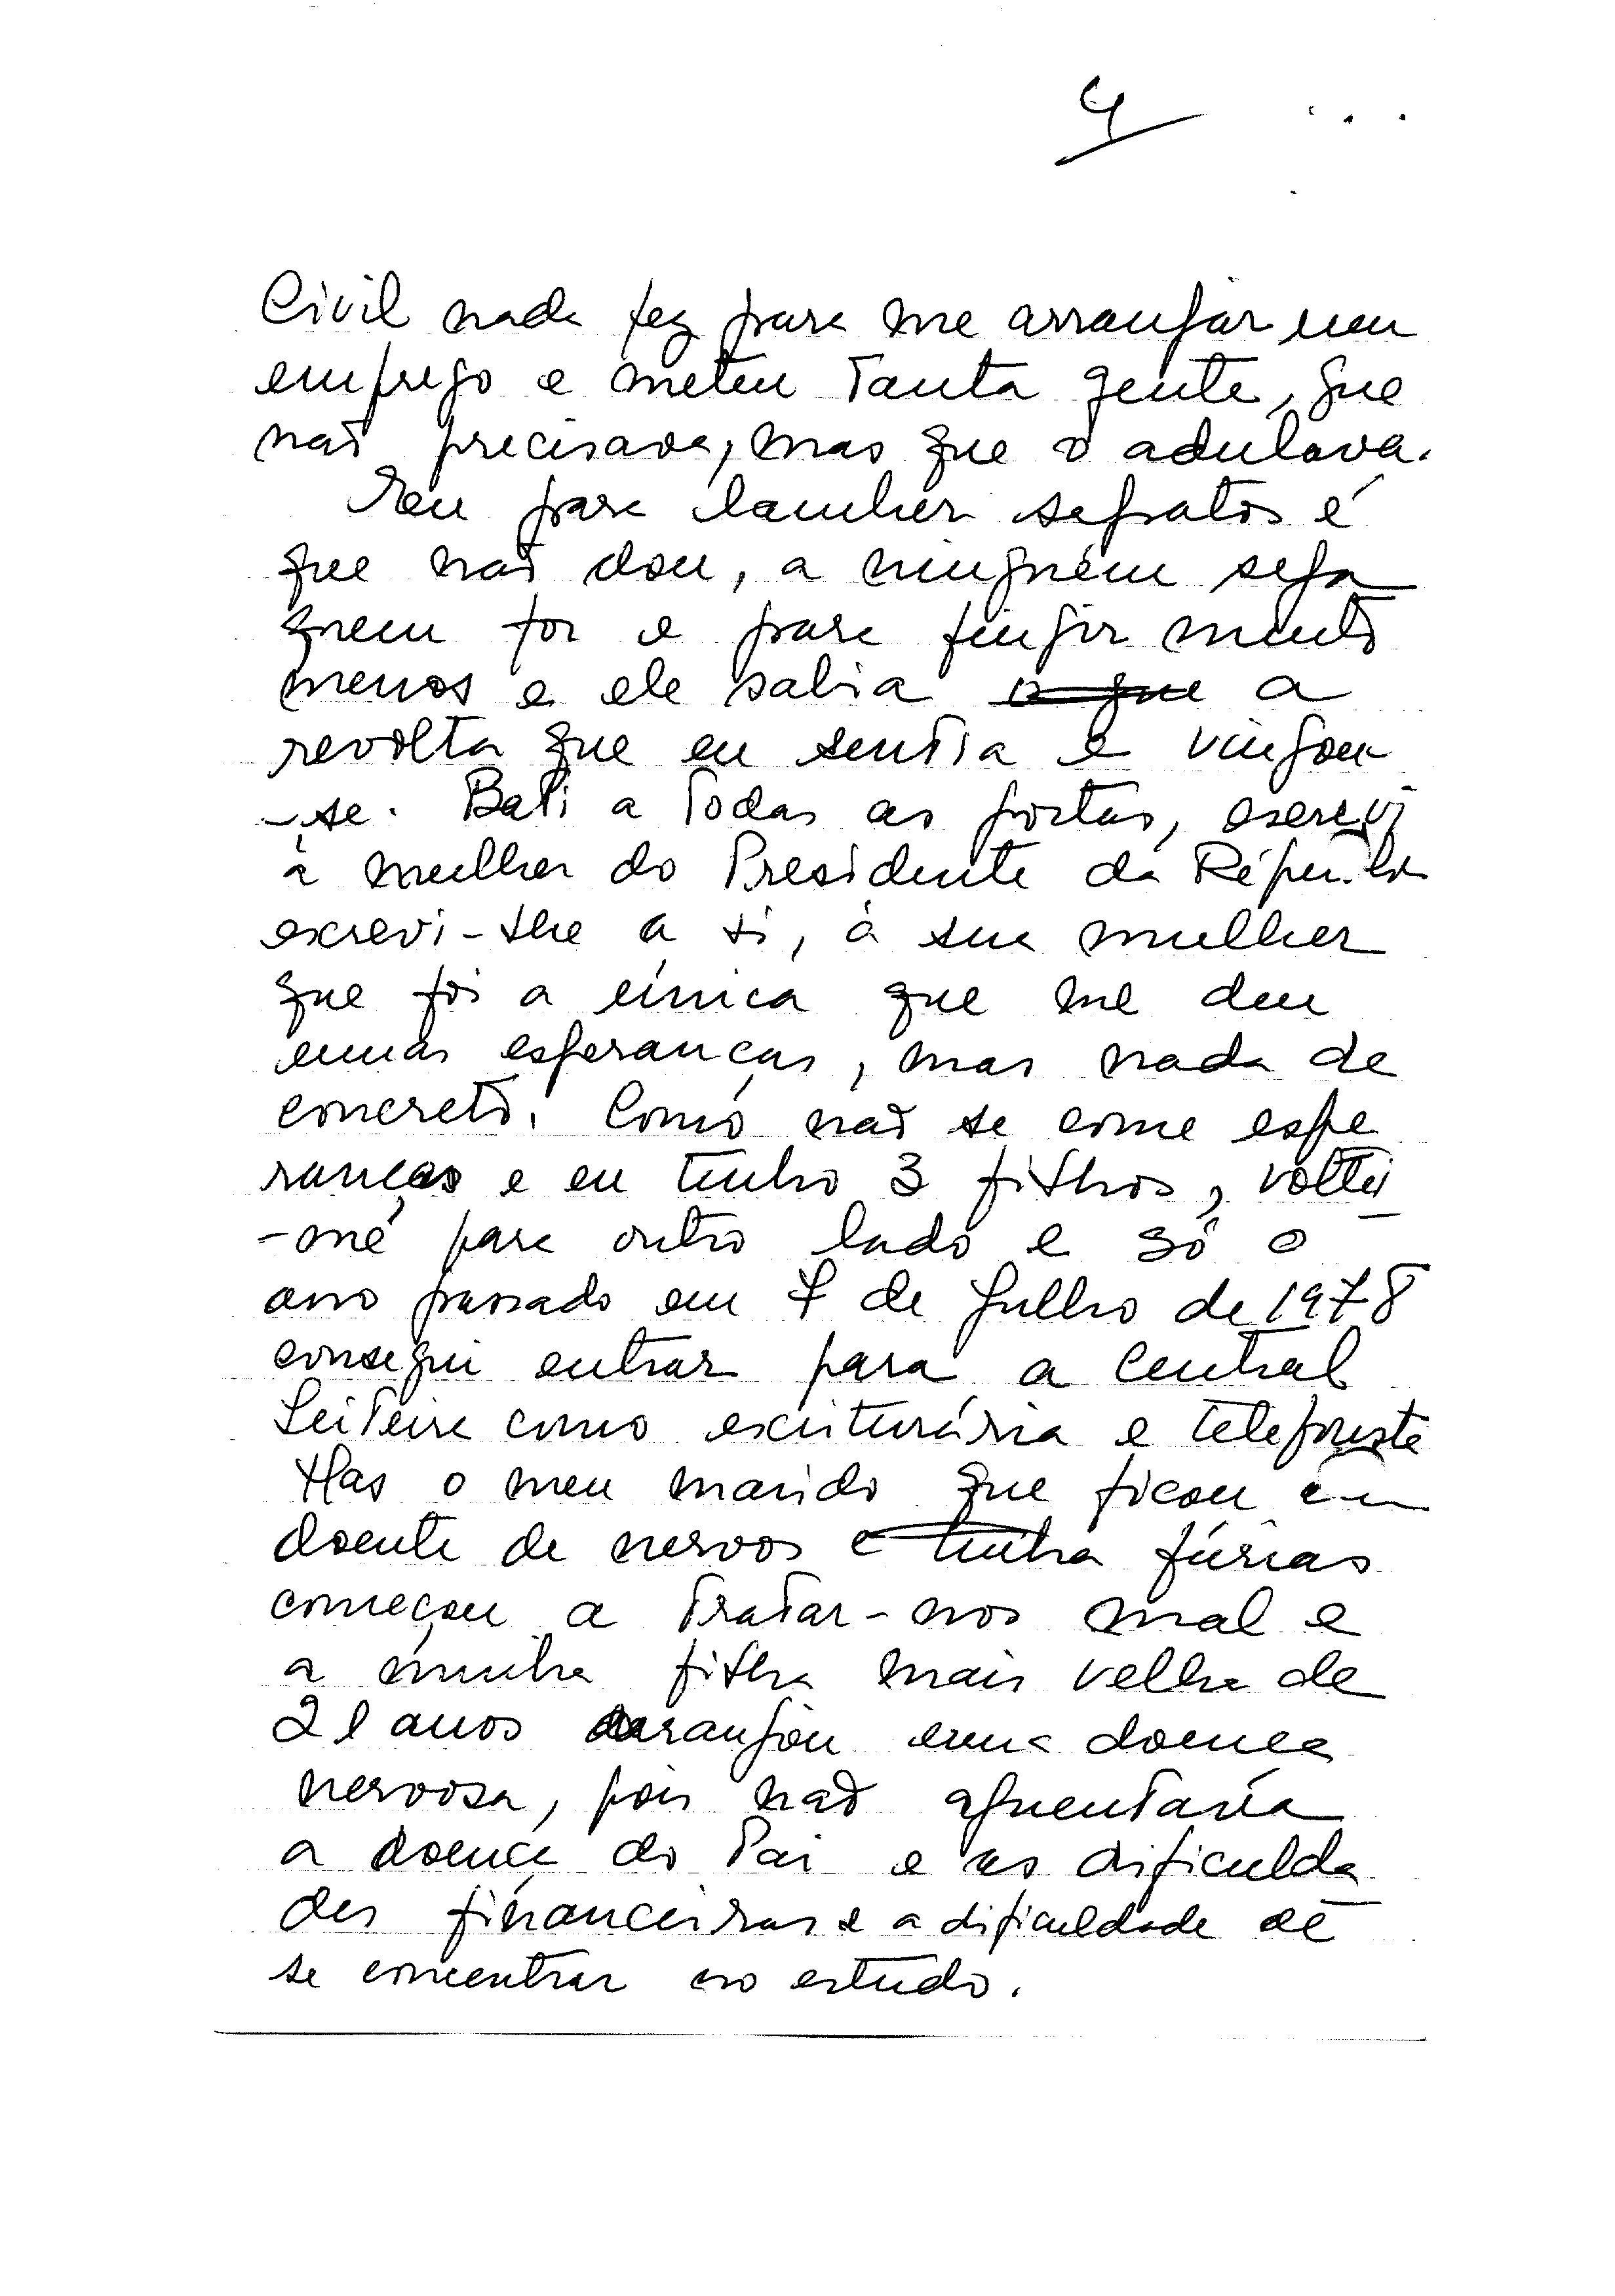 4
Civil nada fez para me arranjar um
emprego e meteu tanta gente, que
não precisava, mas que o adulava.
Eu para lamber sapatos é
que não dou, a ninguém seja
quem for e para fingir muito
menos e ele sabia o que a
revolta que eu sentia e vingou
-se. Bati a todas as portas, escrevi
à mulher do Presidente da República
escrevi-lhe a si, à sua mulher
que foi a única que me deu
umas esperanças, mas nada de
concreto. Como não se come espe
ranças e eu tenho 3 filhos, voltei
-me para outro lado e só o
ano passado em 7 de Julho de 1978
consegui entrar para a Central
Leiteira como escriturária e telefonista
Mas o meu marido que ficou um
doente de nervos e tinha fúrias
começou a tratar-nos mal e
a minha filha mais velha de
21 anos arranjou uma doença
nervosa, pois não aguentava
a doença do Pai e as dificulda
des financeiras e a dificuldade de
se concentrar no estudo.